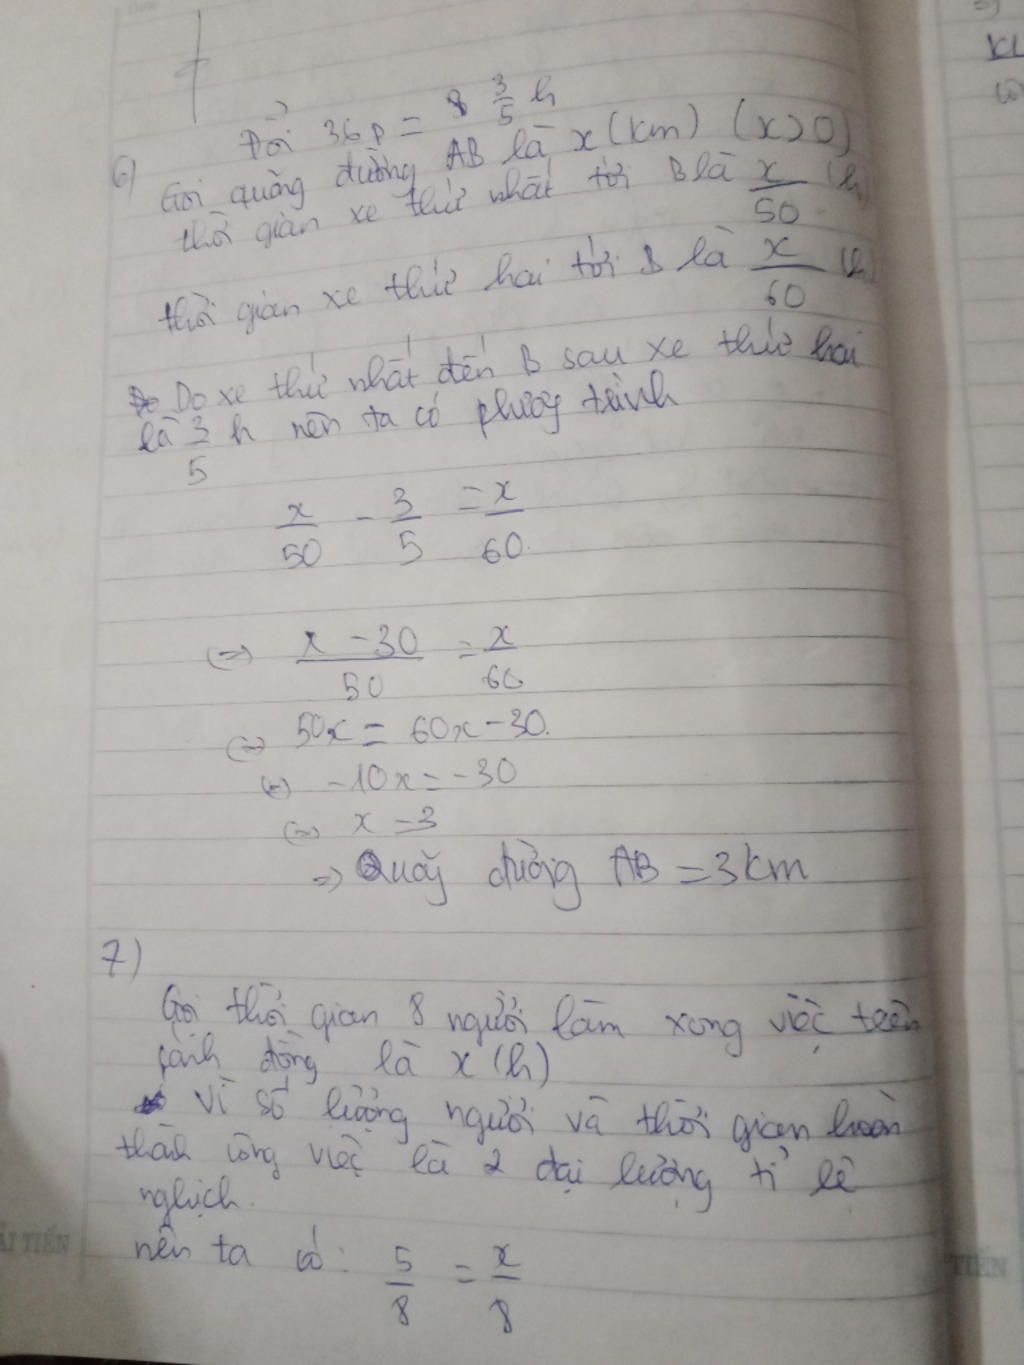 Đổi 36p = 8 3/5 h
6) Gọi quãng đường AB là x (km) (x>0)
thời gian xe thứ nhất tới B là x/50 (h)
thời gian xe thứ hai tới B là x/60 (h)
Do xe thứ nhất đến B sau xe thứ hai
là 3/5 h nên ta có phương trình
x/50 - 3/5 = x/60
(=) x - 30/50 = x/60
(=) 50x = 60x - 30.
(=) -10x = -30
(=) x = 3
=) Quãng đường AB = 3km
7)
Gọi thời gian 8 người làm xong việc trên
cánh đồng là x (h)
Vì số lượng người và thời gian hoàn
thành công việc là 2 đại lượng tỉ lệ
nghịch.
nên ta có: 5/8 = x/8
KL
TIẾN
TIẾN